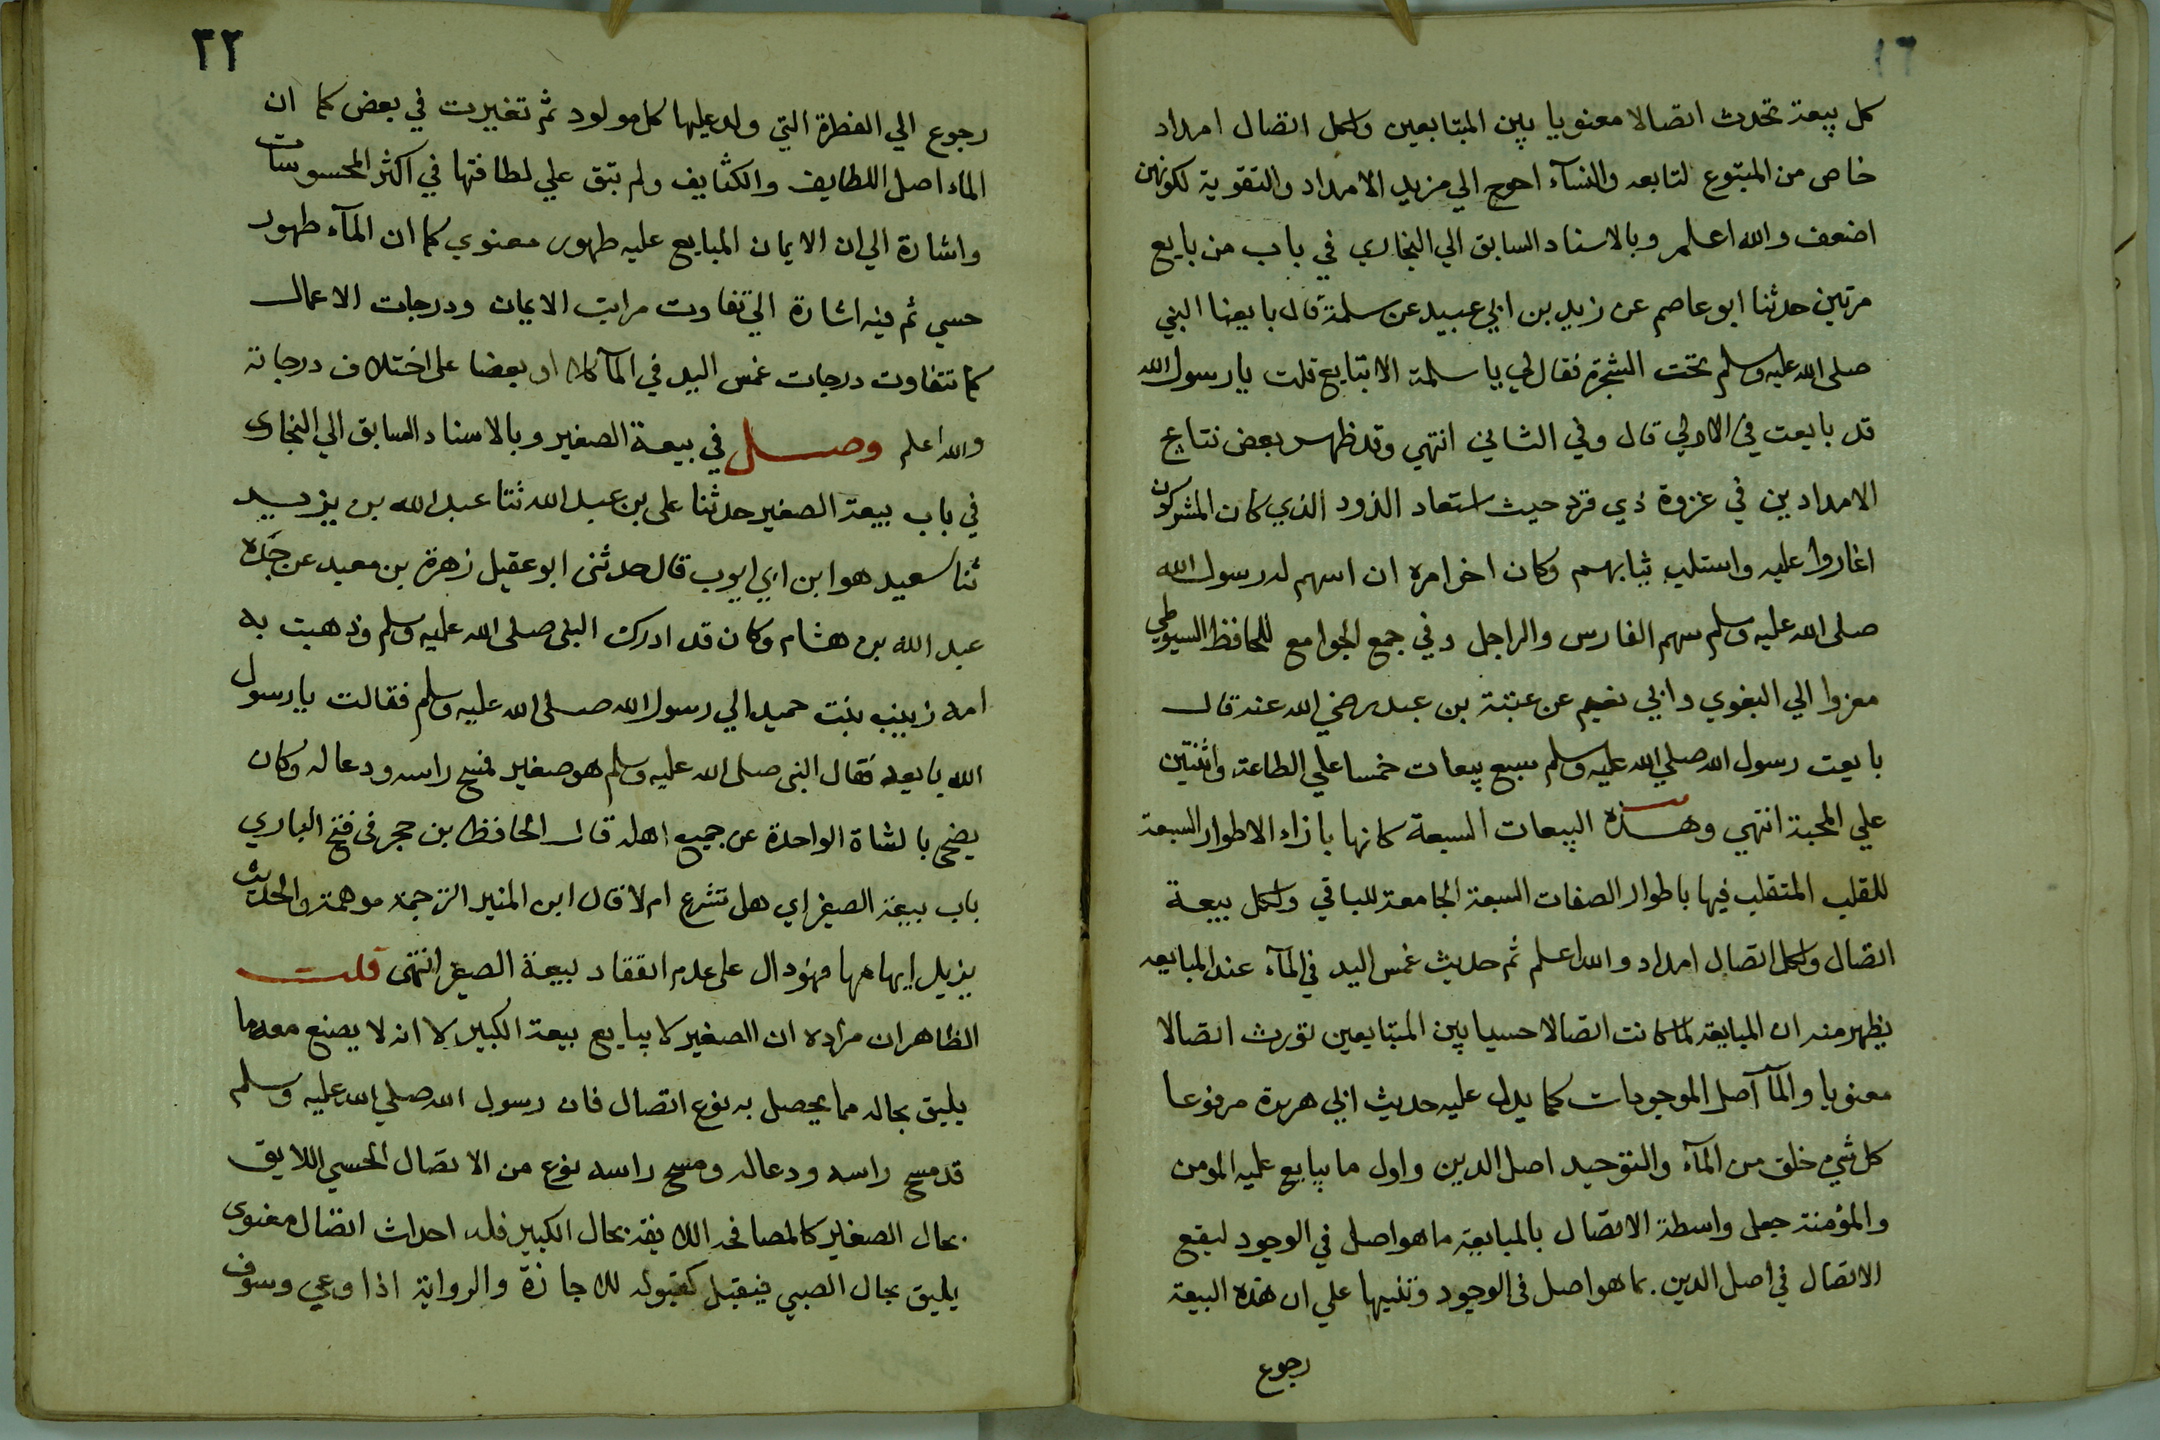 ١٦
كل بيعة تحدث اتصالا معنويا بين المتبايعين ولكل اتصال امداد
خاص من المتبوع لتابعه والنسآء احوج الي مزيد الامداد والتقوية لكونهن
اضعف والله اعلم وبالاسناد السابق الي البخاري في باب من بايع
مرتين حدثنا ابو عاصم عن زيد بن ابي عبيد عن سلمة قال بايعنا النبي
صلى الله عليه وسلم تحت الشجرة فقال لي يا سلمة الا تبايع قلت يا رسول الله
قد بايعت في الاولي قال وفي الثاني انتهي وقد ظهر بعض نتايج
الامدادين في غزوة ذي قرد حيث استعاد الذود الذي كان المشركون
اغاروا عليه واستلب ثيابهم وكان اخر امره ان اسهم له رسول الله
صلى الله عليه وسلم سهم الفارس والراجل وفي جمع الجوامع للحافظ السيوطي
معزوا الي البغوي وابي نعيم عن عتبة بن عبد رضي الله عنه قال
بايعت رسول الله صلي الله عليه وسلم سبع بيعات خمسا علي الطاعة واثنتين
علي المحبة انتهي وهذه البيعات السبعة كانها بازاء الاطوار السبعة
للقلب المتقلب فيها باطوار الصفات السبعة الجامعة للباقي ولكل بيعة
اتصال ولكل اتصال امداد والله اعلم ثم حديث غمس اليد في المآء عند المبايعه
يظهر منه ان المبايعة لما كانت اتصالا حسيا بين المتبايعين تورث اتصالا
معنويا والمآ آصل الموجودات كما يدل عليه حديث ابي هريرة مرفوعا
كل شيء خلق من المآء والتوحيد اصل الدين واول ما يبايع عليه المومن
والمؤمنة جعل واسطة الاتصال بالمبايعة ما هو اصل في الوجود ليقع
الاتصال في اصل الدين بما هو اصل في الوجود وتنبيها علي ان هذه البيعة
رجوع
٢٢
رجوع الي الفطرة التي ولد عليها كل مولود ثم تغيرت في بعض كما ان
الماء اصل اللطايف والكثايف ولم تبق علي لطافتها في اكثر المحسوسات
واشارة الي ان الايمان المبايع عليه طهور معنوي كما ان المآء طهور
حسي ثم فيه اشارة الي تفاوت مراتب الايمان ودرجات الاعمال
كما تتفاوت درجات غمس اليد في المآ كلا او بعضا علي اختلاف درجاته
والله اعلم وصل في بيعة الصغير وبالاسناد السابق الي البخاري
في باب بيعة الصغير حدثنا علي بن عبد الله ثنا عبد الله بن يزيد
ثنا سعيد هو ابن ابي ايوب قال حدثني ابو عقيل زهرة بن معبد عن جده
عبد الله بن هشام وكان قد ادرك النبي صلى الله عليه وسلم وذهبت به
امه زينب بنت حميد الي رسول الله صلى الله عليه وسلم فقالت يا رسول
الله بايعه فقال النبي صلى الله عليه وسلم هو صغير فمسح راسه ودعا له وكان
يضحي بالشاة الواحدة عن جميع اهله قال الحافظ بن حجر في فتح الباري
باب بيعة الصغير اي هل تشرع ام لا قال ابن المنير الترجمة موهمة والحديث
يزيل ايهامها فهو دال على عدم انعقاد بيعة الصغير انتهى قلت
الظاهر ان مراده ان الصغير لا يبايع بيعة الكبير لا انه لا يصنع معه ما
يليق بحاله مما يحصل به نوع اتصال فان رسول الله صلي الله عليه وسلم
قد مسح راسه ودعا له ومسح راسه نوع من الاتصال الحسي اللايق
بحال الصغير كالمصافحه اللايقة بحال الكبير فله احداث اتصال معنوي
يليق بحال الصبي فيقبل كقبوله للاجازة والرواية اذا وعي وسوف